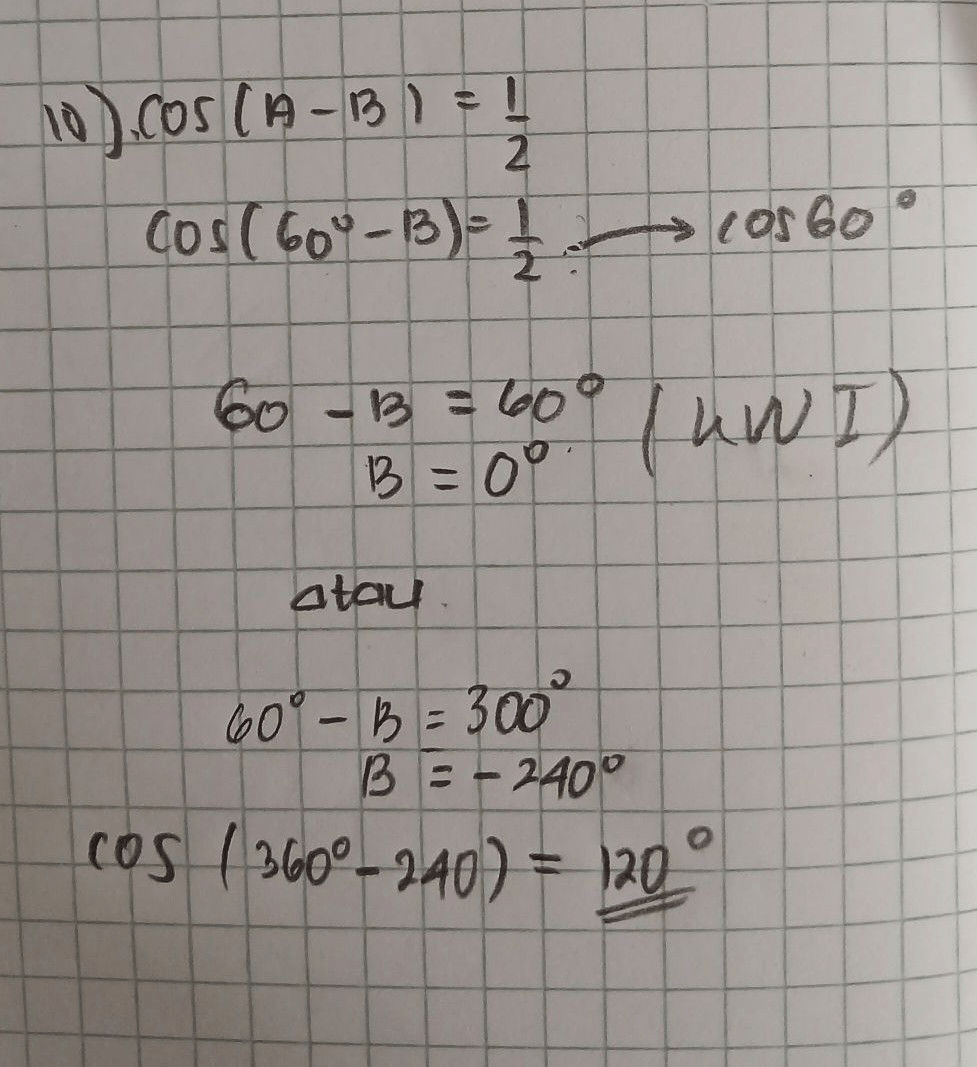 10). cos(A - B) = 1/2
cos(60° - B) = 1/2 → cos 60°
60 - B = 60° (KW I)
B = 0°
atau
60° - B = 300°
B = -240°
cos (360° - 240) = 120°